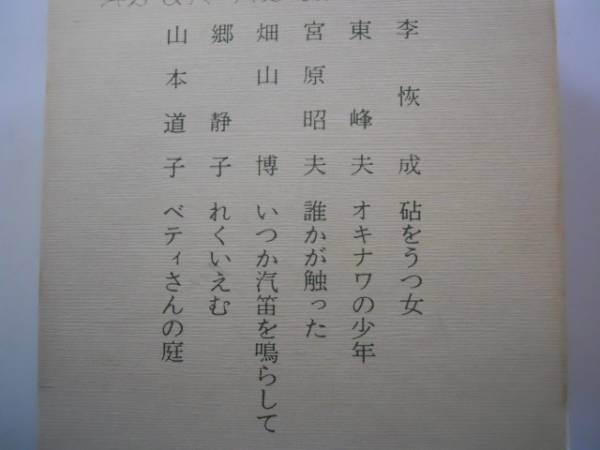 李恢成 砧をうつ女
東峰夫 オキナワの少年
宮原昭夫 誰かが触った
畑山博 いつか汽笛を鳴らして
郷静子 れくいえむ
山本道子 ベティさんの庭